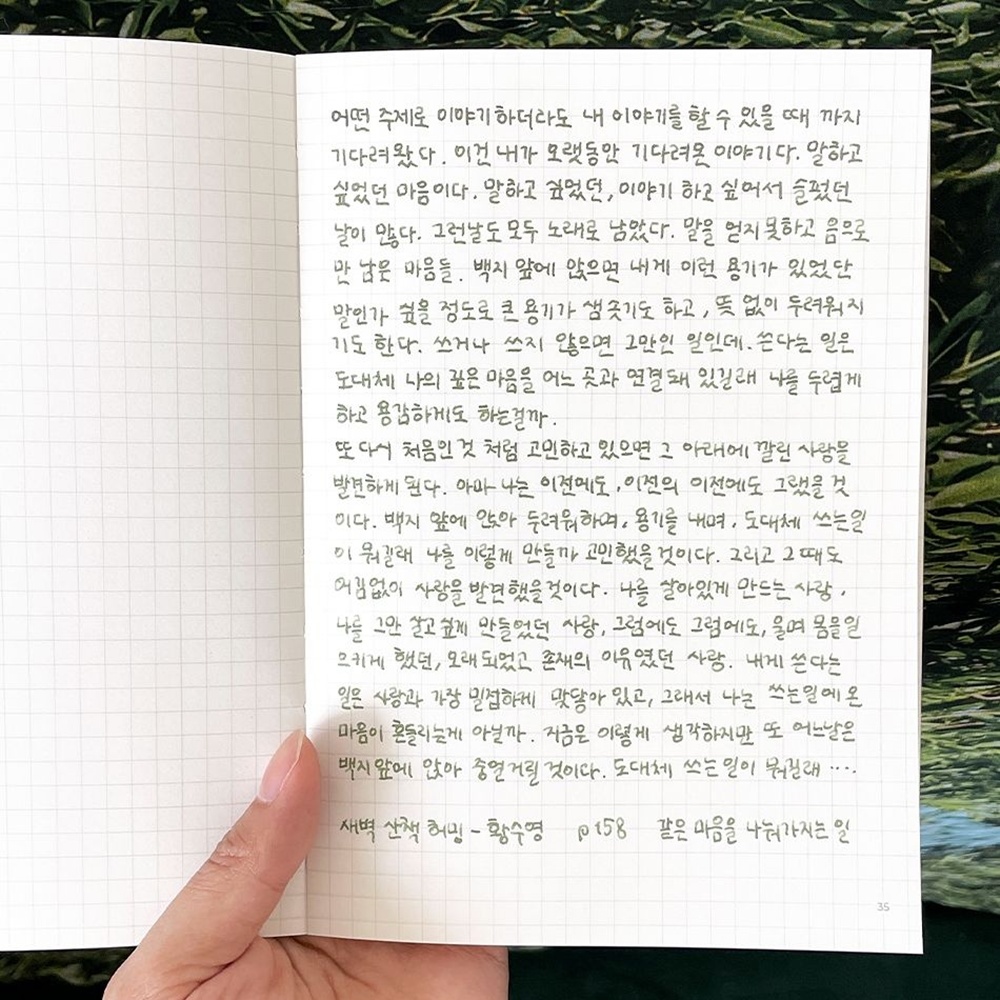 어떤 주제로 이야기하더라도 내 이야기를 할 수 있을 때 까지
기다려왔다. 이건 내가 오랫동안 기다려온 이야기다. 말하고
싶었던 마음이다. 말하고 싶었던, 이야기 하고 싶어서 슬펐던
날이 많다. 그런날도 모두 노래로 남았다. 말을 얻지 못하고 음으로
만 남은 마음들. 백지 앞에 앉으면 내게 이런 용기가 있었단
말인가 싶을 정도로 큰 용기가 샘솟기도 하고, 뜻 없이 두려워지
기도 한다. 쓰거나 쓰지 않으면 그만인 일인데. 쓴다는 일은
도대체 나의 깊은 마음을 어느 곳과 연결돼 있길래 나를 두렵게
하고 용감하게도 하는걸까.
또 다시 처음인 것 처럼 고민하고 있으면 그 아래에 깔린 사랑을
발견하게 된다. 아마 나는 이전에도, 이전의 이전에도 그랬을 것
이다. 백지 앞에 앉아 두려워하며, 용기를 내며, 도대체 쓰는일
이 뭐길래 나를 이렇게 만들까 고민했을것이다. 그리고 그 때도
어김없이 사랑을 발견했을것이다. 나를 살아있게 만드는 사랑,
나를 그만 살고 싶게 만들었던 사랑, 그럼에도 그럼에도, 울며 몸을일
으키게 했던, 오래 되었고 존재의 이유였던 사랑. 내게 쓴다는
일은 사랑과 가장 밀접하게 맞닿아 있고, 그래서 나는 쓰는일에 온
마음이 흔들리는게 아닐까. 지금은 이렇게 생각하지만 또 어느날은
백지 앞에 앉아 중얼거릴 것이다. 도대체 쓰는 일이 뭐길래 ....
새벽 산책 허밍 - 황수영 p158 같은 마음을 나눠가지는 일
35